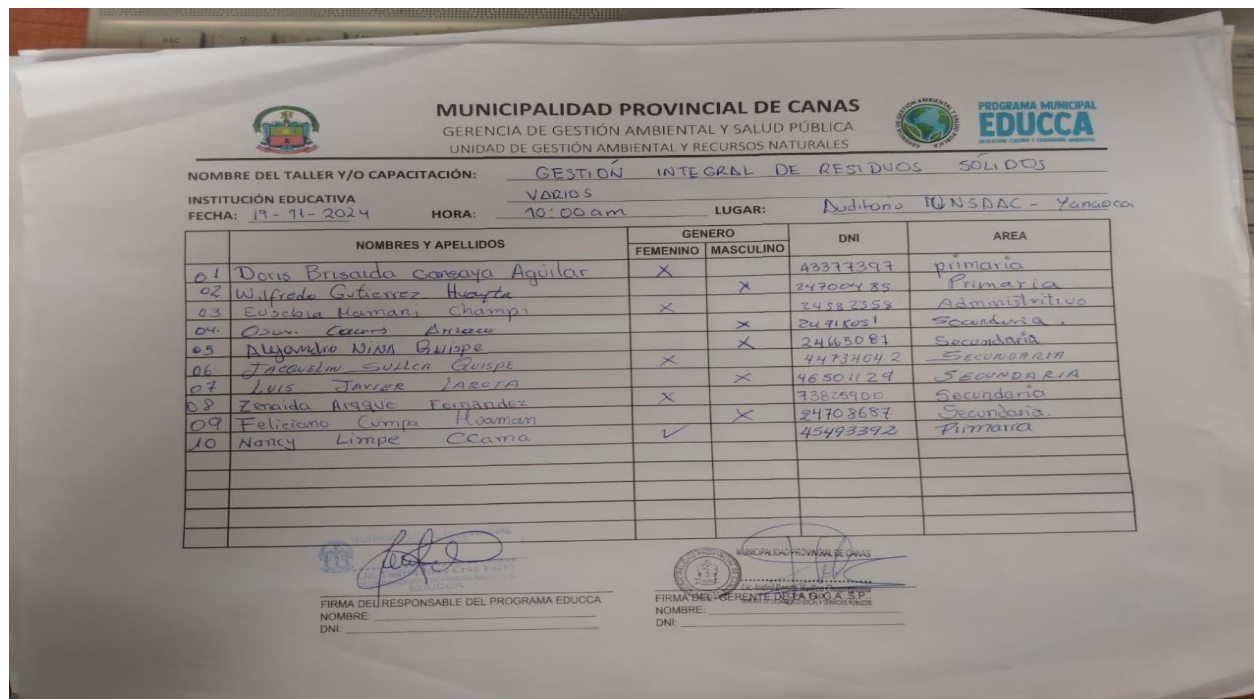 MUNICIPALIDAD PROVINCIAL DE CANAS
GERENCIA DE GESTIÓN AMBIENTAL Y SALUD PÚBLICA
UNIDAD DE GESTIÓN AMBIENTAL Y RECURSOS NATURALES
PROGRAMA MUNICIPAL
EDUCCA
NOMBRE DEL TALLER Y/O CAPACITACIÓN: GESTIÓN INTEGRAL DE RESIDUOS SÓLIDOS
INSTITUCIÓN EDUCATIVA VARIOS
FECHA: 19-11-2024 HORA: 10:00 am LUGAR: Auditorio UNSAAC - Yanaoca
NOMBRES Y APELLIDOS GENERO DNI AREA
FEMENINO MASCULINO
01 Doris Brisaida Consaya Aguilar X 43377397 primaria
02 Wilfredo Gutierrez Huayta X 24700485 Primaria
03 Eusebia Mamani Champi X 24582358 Administritivo
04. X Secundaria.
05 Alejandro NINA Quispe X 24665087 Secundaria
06 JACQUELIN SULLCA QUISPE X 44734042 SECUNDARIA
07 LUIS JAVIER LAROTA X 46501129 SECUNDARIA
08 Zenaida Araque Fernandez X 73825900 Secundaria
09 Feliciano Cumpa Huaman X 24708687 Secundaria.
10 Nancy Limpe Ccama ✓ 45493392 Primaria
MUNICIPALIDAD PROVINCIAL DE CANAS
FIRMA DEL RESPONSABLE DEL PROGRAMA EDUCCA
NOMBRE:
DNI:
FIRMA DEL GERENTE DE LA G.G.A.S.P.
NOMBRE:
DNI: